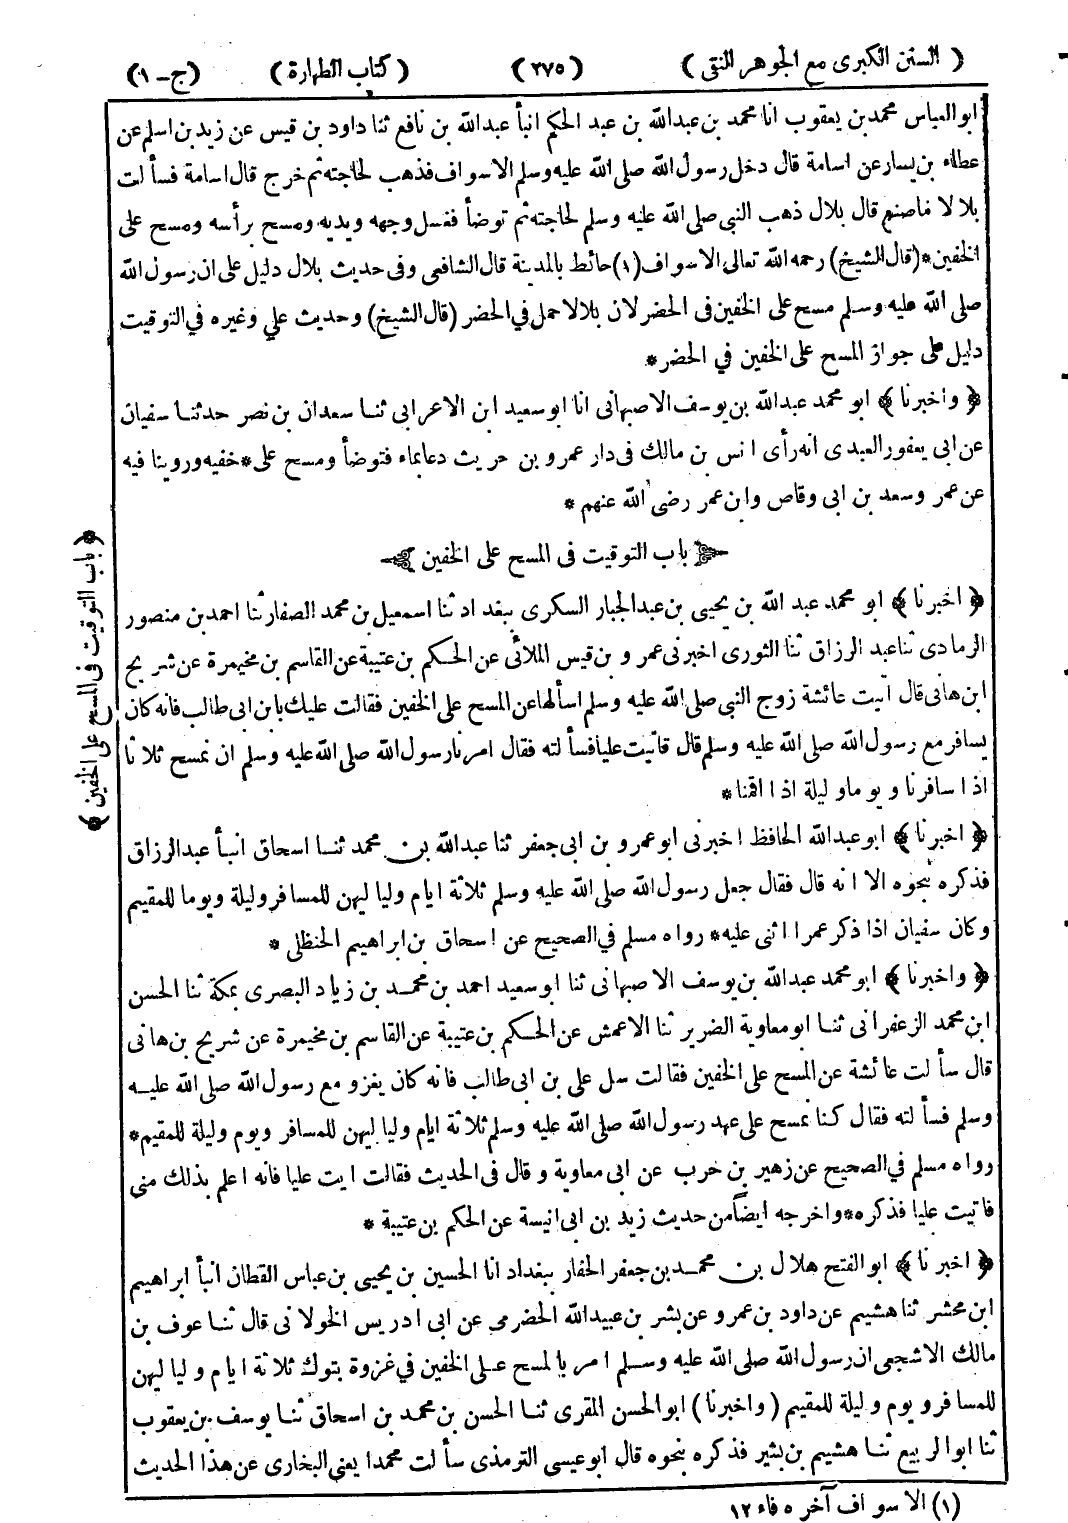 (السنن الكبرى مع الجوهر النقى) (٢٧٥) (كتاب الطهارة) (ج-١)
ابوالعباس محمد بن يعقوب انا محمد بن عبدالله بن عبد الحكم انبأ عبدالله بن نافع ثنا داود بن قيس عن زيد بن اسلم عن
عطاء بن يسار عن اسامة قال دخل رسول الله صلى الله عليه وسلم الاسواف فذهب لحاجته ثم خرج قال اسامة فسألت
بلالا ما صنع قال بلال ذهب النبي صلى الله عليه وسلم لحاجته ثم توضأ فغسل وجهه ويديه ومسح برأسه ومسح على
الخفين* (قال الشيخ) رحمه الله تعالى الاسواف(١) حائط بالمدينة قال الشافعى وفى حديث بلال دليل على ان رسول الله
صلى الله عليه وسلم مسح على الخفين فى الحضر لان بلالا حمل في الحضر (قال الشيخ) وحديث علي وغيره في التوقيت
دليل على جواز المسح على الخفين في الحضر*
﴿واخبرنا﴾ ابو محمد عبدالله بن يوسف الاصبهانى انا ابو سعيد ابن الاعرابى ثنا سعدان بن نصر حدثنا سفيان
عن ابى يعفور العبدى انه رأى انس بن مالك فى دار عمرو بن حريث دعا بماء فتوضأ ومسح على* خفيه وروينا فيه
عن عمر وسعد بن ابى وقاص وابن عمر رضى الله عنهم *
باب التوقيت فى المسح على الخفين
﴿اخبرنا﴾ ابو محمد عبد الله بن يحيى بن عبدالجبار السكرى ببغداد ثنا اسمعيل بن محمد الصفار ثنا احمد بن منصور
الرمادى ثنا عبد الرزاق ثنا الثورى اخبرنى عمرو بن قيس الملائى عن الحكم بن عتيبة عن القاسم بن مخيمرة عن شريح
ابن هانى قال اتيت عائشة زوج النبى صلى الله عليه وسلم اسألها عن المسح على الخفين فقالت عليك بابن ابى طالب فانه كان
يسافر مع رسول الله صلى الله عليه وسلم قال فاتيت عليا فسألته فقال امرنا رسول الله صلى الله عليه وسلم ان نمسح ثلاثا
اذا سافرنا ويوما وليلة اذا اقمنا*
﴿اخبرنا﴾ ابو عبدالله الحافظ اخبرنى ابو عمرو بن ابى جعفر ثنا عبدالله بن محمد ثنا اسحاق انبأ عبد الرزاق
فذكره بنحوه الا انه قال فقال جعل رسول الله صلى الله عليه وسلم ثلاثة ايام ولياليهن للمسافر وليلة ويوما للمقيم
وكان سفيان اذا ذكر عمرا اثنى عليه* رواه مسلم في الصحيح عن اسحاق بن ابراهيم الحنظلى *
﴿واخبرنا﴾ ابو محمد عبدالله بن يوسف الاصبهانى ثنا ابو سعيد احمد بن محمد بن زياد البصرى بمكة ثنا الحسن
ابن محمد الزعفرانى ثنا ابو معاوية الضرير ثنا الاعمش عن الحكم بن عتيبة عن القاسم بن مخيمرة عن شريح بن هانى
قال سألت عائشة عن المسح على الخفين فقالت سل على بن ابى طالب فانه كان يغزو مع رسول الله صلى الله عليه
وسلم فسألته فقال كنا نمسح على عهد رسول الله صلى الله عليه وسلم ثلاثة ايام ولياليهن للمسافر ويوم وليلة للمقيم*
رواه مسلم في الصحيح عن زهير بن حرب عن ابى معاوية وقال فى الحديث فقالت ايت عليا فانه اعلم بذلك منى
فاتيت عليا فذكره* واخرجه ايضا من حديث زيد بن ابى انيسة عن الحكم بن عتيبة *
﴿اخبرنا﴾ ابو الفتح هلال بن محمد بن جعفر الحفار ببغداد انا الحسين بن يحيى بن عباس القطان انبأ ابراهيم
ابن محشر ثنا هشيم عن داود بن عمرو عن بشر بن عبيدالله الحضرمى عن ابى ادريس الخولانى قال ثنا عوف بن
مالك الاشجعى ان رسول الله صلى الله عليه وسلم امر بالمسح على الخفين في غزوة تبوك ثلاثة ايام ولياليهن
للمسافر ويوم وليلة للمقيم (واخبرنا) ابو الحسن المقرى ثنا الحسن بن محمد بن اسحاق ثنا يوسف بن يعقوب
ثنا ابو الربيع ثنا هشيم بن بشير فذكره بنحوه قال ابو عيسى الترمذى سألت محمدا يعنى البخارى عن هذا الحديث
(١) الاسواف آخره فاء ١٢
﴿باب التوقيت فى المسح على الخفين﴾